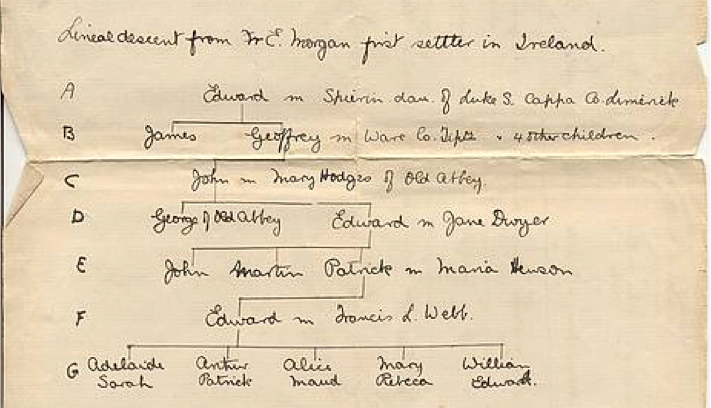 Lineal descent from Mr E. Morgan first settler in Ireland.
A Edward m Spierin dau. of Luke S. Cappa Co. Limerick
B James Geoffrey m Ware Co. Tipp. 4 other children.
C John m Mary Hodges of Old Abbey.
D George of Old Abbey Edward m Jane Dwyer
E John Martin Patrick m Maria Henson
F Edward m Francis L. Webb.
G Adelaide Arthur Alice Mary William
Sarah Patrick Maud Rebeca Edward.